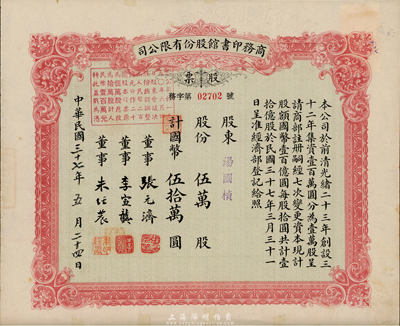 商務印書館股份有限公司
股票
務字第 02702 號
本公司於前清光緒二十三年創設三
十二年集資壹百萬圓分為壹萬股呈
請商部註册嗣經七次變更資本現計
股額國幣壹百億圓每股拾圓共計壹
拾億股於民國三十七年三月三十一
日呈准經濟部登記給照
股東 湯國楨
股份 伍萬股
計國幣 伍拾萬圓
董事 張元濟
董事 李宣龔
董事 朱經農
中華民國三十七年五月二十四日